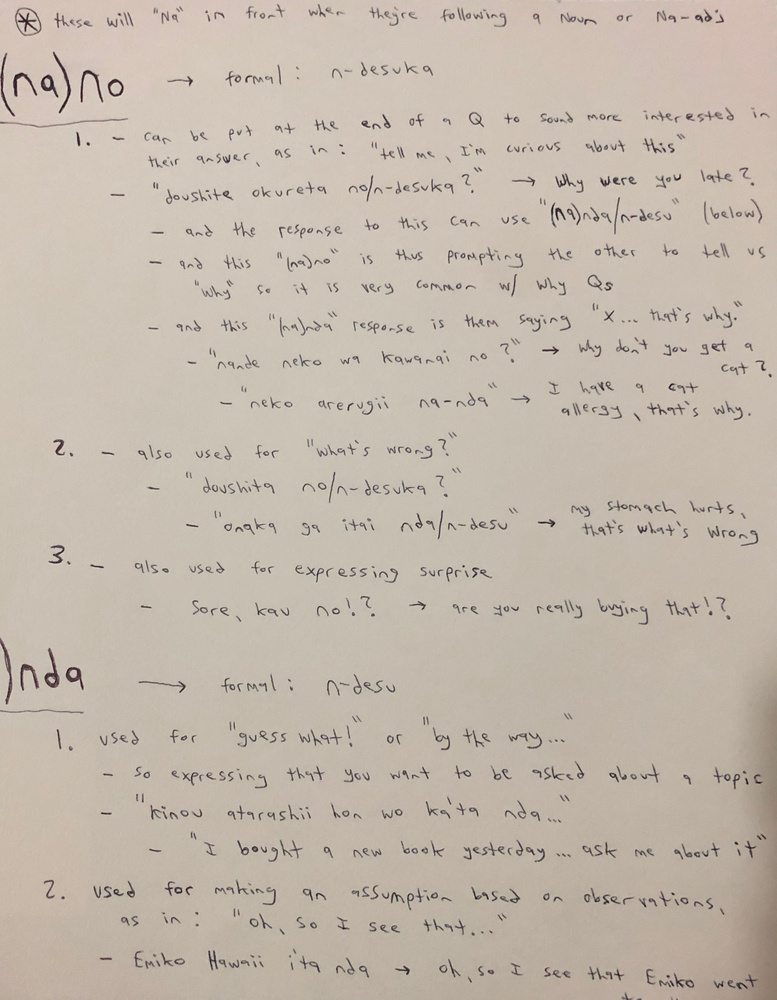 * these will "Na" in front when they're following a Noun or Na-adj
(na)no → formal: n-desuka
1. - can be put at the end of a Q to sound more interested in
their answer, as in: "tell me, I'm curious about this"
- "doushite okureta no/n-desuka?" → Why were you late?
- and the response to this can use "(na)nda/n-desu" (below)
- and this "(na)no" is thus prompting the other to tell us
"why" so it is very common w/ Why Qs
- and this "(na)nda" response is them saying "X... that's why."
- "nande neko wa kawanai no?" → Why don't you get a
cat?
- "neko arerugii na-nda" → I have a cat
allergy, that's why.
2. - also used for "what's wrong?"
- "doushita no/n-desuka?"
- "onaka ga itai nda/n-desu" → my stomach hurts,
that's what's wrong
3. - also used for expressing surprise
- Sore, kau no!? → are you really buying that!?
)nda → formal: n-desu
1. used for "guess what!" or "by the way..."
- so expressing that you want to be asked about a topic
- "kinou atarashii hon wo ka'ta nda..."
- "I bought a new book yesterday... ask me about it"
2. used for making an assumption based on observations,
as in: "oh, so I see that..."
- Emiko Hawaii i'ta nda → oh, so I see that Emiko went